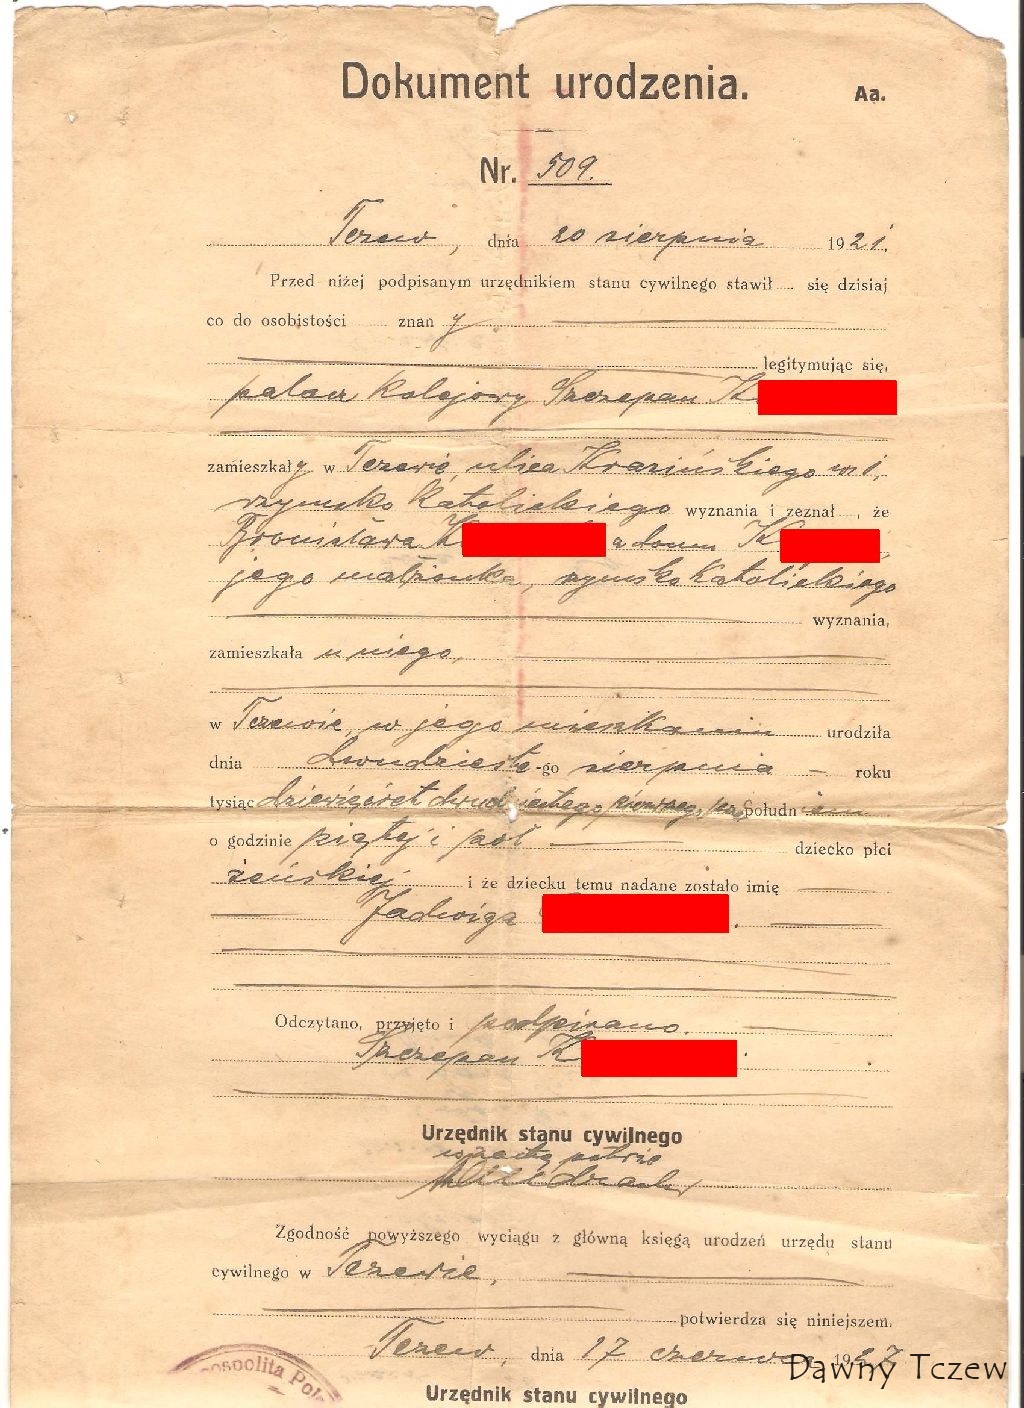 Dokument urodzenia.
Aa.
Nr. 509.
Tczew, dnia 20 sierpnia 1921.
Przed niżej podpisanym urzędnikiem stanu cywilnego stawił .... się dzisiaj
co do osobistości ...... znany.
legitymując się,
palacz kolejowy Szczepan K
zamieszkały w Tczewie ulica Krasińskiego nr 1,
rzymsko katolickiego wyznania i zeznał ..., że
Bronisława K a domu K
jego małżonka, rzymsko katolickiego
wyznania,
zamieszkała u niego,
w Tczewie, w jego mieszkaniu urodziła
dnia dwudzieste-go sierpnia – roku
tysiąc dziewięćset dwudziestego pierwszego, południem
o godzinie piątej i pół dziecko płci
żeńskiej i że dziecku temu nadane zostało imię
Jadwiga
Odczytano, przyjęto i podpisano.
Szczepan K
Urzędnik stanu cywilnego
Zgodność powyższego wyciągu z główną księgą urodzeń urzędu stanu
cywilnego w Tczewie,
potwierdza się niniejszem.
Tczew, dnia 17 czerwca 1927
Dawny Tczew
Urzędnik stanu cywilnego